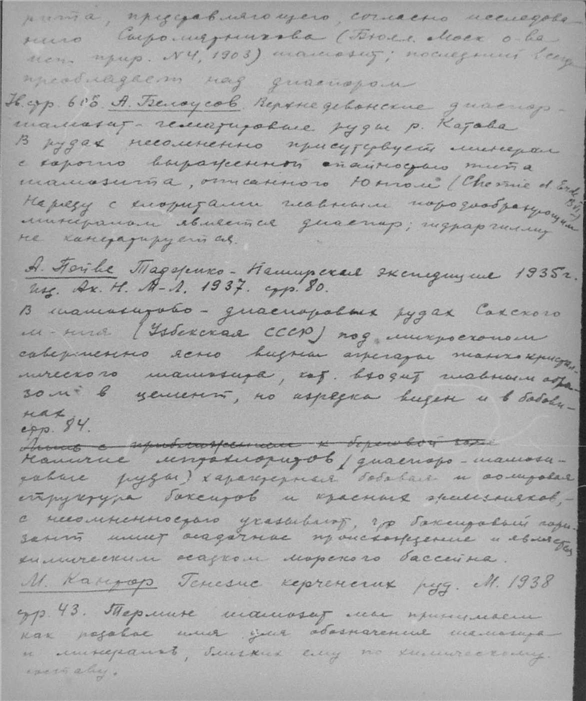 рита, представляющего, согласно исследова-
нию Сыромятникова (Бюлл. Моск. о-ва
исп. прир. N4, 1903) шамозит; последний всегда
преобладает над диаспором
стр. 615. А. Белоусов. Верхнедевонские диаспор-
шамозит-гематитовые руды р. Катова
В рудах несомненно присутствует минерал
с хорошо выраженной спайностью типа
шамозита, описанного Юнгом (Chemie d. Erde
Наряду с хлоритами главным породообразующим
минералом является диаспор; гидраргиллит
не констатируется.
А. Пейве Таджико-Памирская экспедиция 1935г.
изд. Ак. Н. М-Л. 1937. стр. 80.
В шамозитово-диаспоровых рудах Сокского
м-ния (Узбекская ССР) под микроскопом
совершенно ясно видны агрегаты тонкокристал-
лического шамозита, кот. входит главным обра-
зом в цемент, но изредка виден и в бобови-
нах.
стр. 84.
Лишь с приближением к береговой
Наличие лептохлоритов (диаспоро-шамози-
товые руды) характерная бобовая и оолитовая
структура бокситов и красных железняков,-
с несомненностью указывают, что бокситовый гори-
зонт имеет осадочное происхождение и является
химическим осадком морского бассейна.
М. Кантор Генезис керченских руд. М. 1938
стр. 43. Термин шамозит мы принимаем
как родовое имя для обозначения шамозита
и минералов, близких ему по химическому
составу.